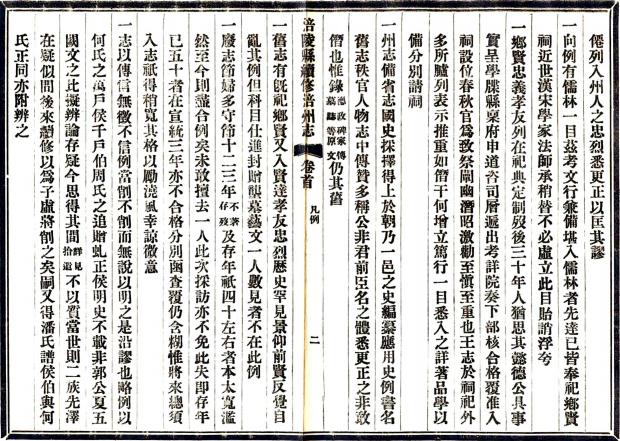 僊列入州人之忠烈悉更正以匡其謬
一向例有儒林一目茲考文行兼備堪入儒林者先達已皆奉祀鄉賢
祠近世漢宋學家法師承稍替不必虛立此目貽誚浮夸
一鄉賢忠義孝友列在祀典定制歿後三十年人猶思其懿德公具事
實呈學牒縣稟府申道咨司層遞出考詳院奏下部核合格覆准入
祠設位春秋官爲致祭闡幽潛昭激勸至慎至重也王志於祠祀外
多所臚列表示推重如僭干何增立篤行一目悉入之詳著品學以
備分別請祠
一州志備省志國史採擇得上於朝乃一邑之史編纂應用史例書名
舊志秩官人物志中傳贊多稱公非君前臣名之體悉更正之非敢
僭也惟錄德政碑家傳墓誌等原文仍其舊
涪陵縣續修涪州志 卷首 凡例 二
一舊志有既祀鄉賢又入賢達孝友忠烈歷史罕見景仰前賢反覺自
亂其例但科目仕進封贈襲墓藝文一人數見者不在此例
一廢志節婦多守節十二三年不著存歿及存年祇四十左右者本太寬濫
然至今則盡合例矣未敢擅去一人此次採訪亦不免此失即存年
已五十者在宣統三年亦不合格分別函查覆仍含糊惟將來總須
入志祇得稍寬其格以勵澆風幸諒微意
一志以傳信無徵不信例當削不削而無說以明之是沿謬也略例以
何氏之萬戶侯千戶伯周氏之追贈虬正侯明史不載非郭公夏五
闕文之比擬辨論存疑今思得其間詳見拾遺不以質當世則二族先澤
在疑似間後來續修以爲子虛將削之矣嗣又得潘氏譜侯伯與何
氏正同亦附辨之